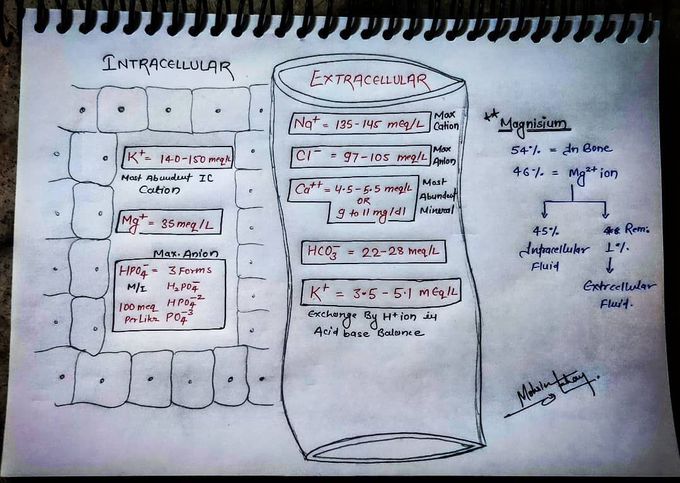 INTRACELLULAR
K+ = 140-150 meq/L
Most Abundent IC
Cation
Mg+ = 35 meq/L
Max. Anion
HPO4- = 3 Forms
M/I H2PO4-
100 meq HPO4-2
Per Litr PO4-3
EXTRACELLULAR
Na+ = 135-145 meq/L
Max
Cation
Cl- = 97-105 meq/L
Max
Anion
Ca++ = 4.5-5.5 meq/L
OR
9 to 11 mg/dl
Most
Abundent
Mineral
HCO3- = 22-28 meq/L
K+ = 3.5-5.1 mEq/L
Exchange By H+ ion in
Acid base Balance
** Magnisium
54% = In Bone
46% = Mg2+ ion
45%
Intracellular
Fluid
Rem.
1%.
Extrcellular
Fluid.